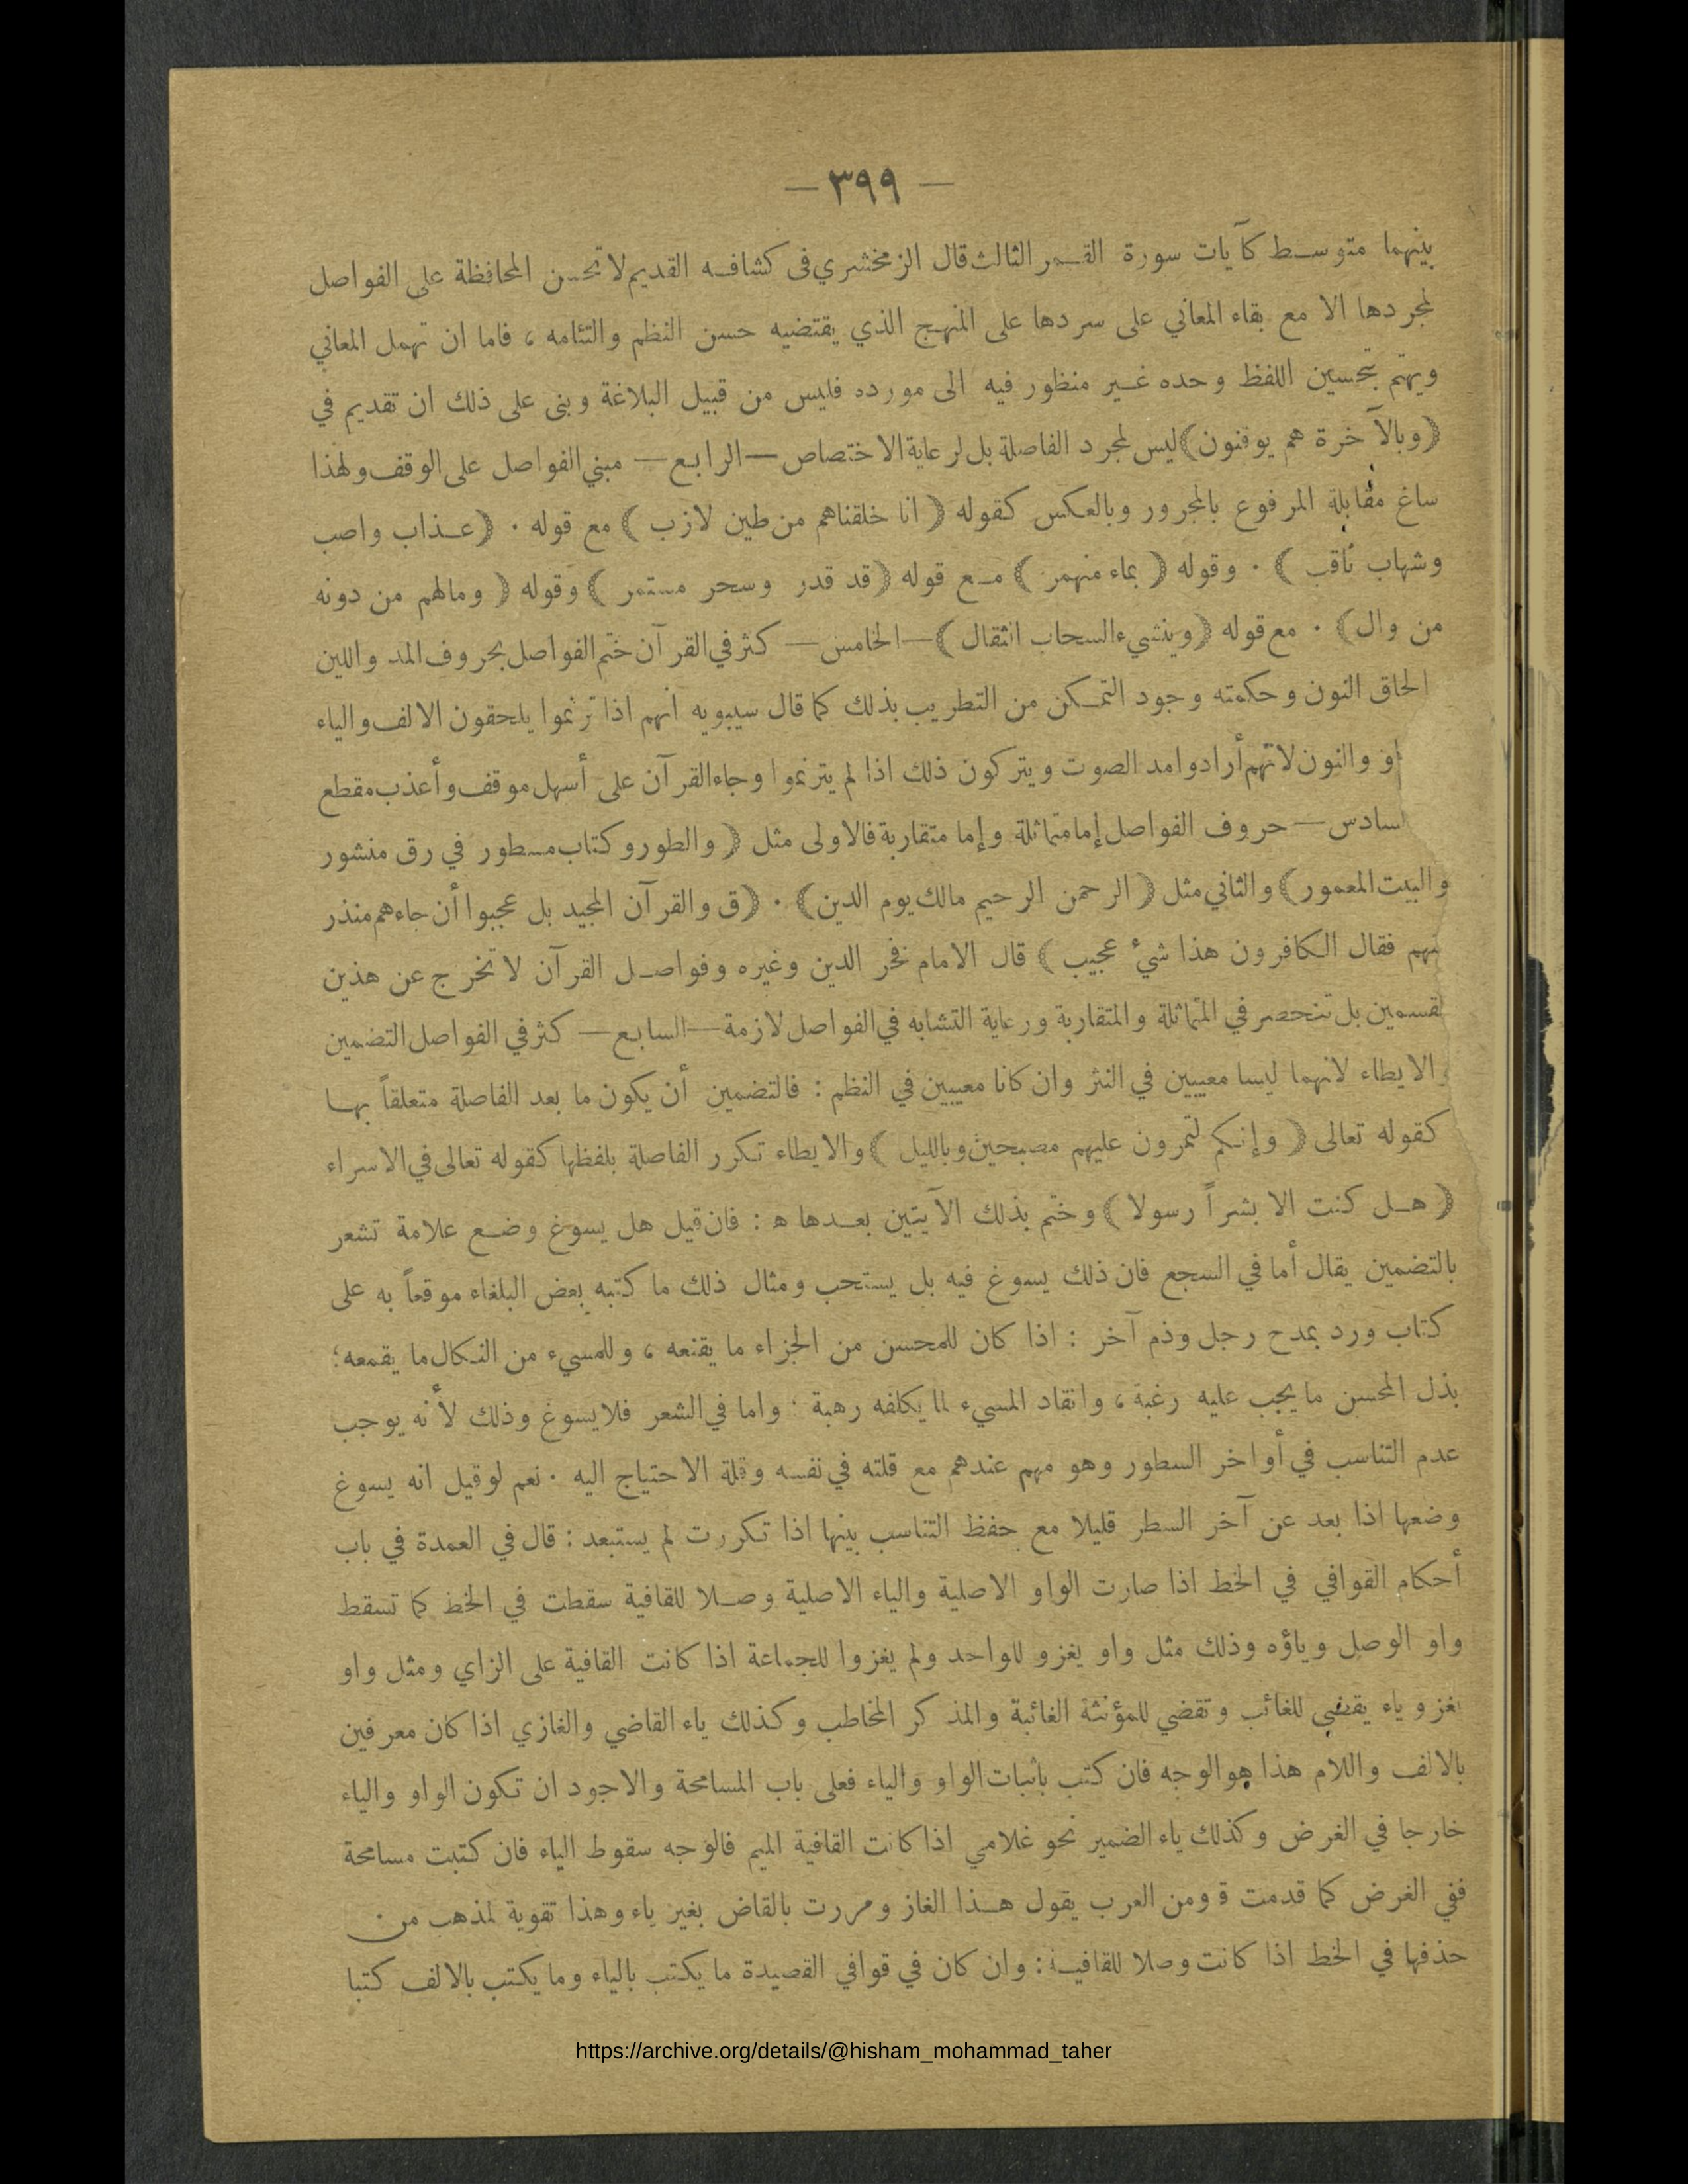 — ٣٩٩ —
بينهما متوسط كآيات سورة القمر الثالث قال الزمخشري فى كشافه القديم لا تحسن المحافظة على الفواصل
لمجردها الا مع بقاء المعاني على سردها على المنهج الذي يقتضيه حسن النظم والتئامه ، فاما ان تهمل المعاني
ويهتم بتحسين اللفظ وحده غير منظور فيه الى مورده فليس من قبيل البلاغة وبنى على ذلك ان تقديم في
(وبالآخرة هم يوقنون) ليس لمجرد الفاصلة بل لرعاية الاختصاص — الرابع — مبني الفواصل على الوقف ولهذا
ساغ مقابلة المرفوع بالمجرور وبالعكس كقوله (انا خلقناهم من طين لازب) مع قوله . (عذاب واصب
وشهاب ثاقب) . وقوله (بماء منهمر) مع قوله (قد قدر وسحر مستمر) وقوله (ومالهم من دونه
من وال) . مع قوله (وينشيء السحاب الثقال) — الخامس — كثر في القرآن ختم الفواصل بحروف المد واللين
الحاق النون وحكمته وجود التمكن من التطريب بذلك كما قال سيبويه انهم اذا ترنموا يلحقون الالف والياء
او والنون لانهم أرادوا مد الصوت ويتركون ذلك اذا لم يترنموا وجاء القرآن على أسهل موقف وأعذب مقطع
سادس — حروف الفواصل إما متماثلة وإما متقاربة فالاولى مثل (والطور وكتاب مسطور في رق منشور
والبيت المعمور) والثاني مثل (الرحمن الرحيم مالك يوم الدين) . (ق والقرآن المجيد بل عجبوا أن جاءهم منذر
منهم فقال الكافرون هذا شيء عجيب) قال الامام فخر الدين وغيره وفواصل القرآن لا تخرج عن هذين
لقسمين بل تنحصر في المتماثلة والمتقاربة ورعاية التشابه في الفواصل لازمة — السابع — كثر في الفواصل التضمين
الايطاء لانهما ليسا معيبين في النثر وان كانا معيبين في النظم : فالتضمين أن يكون ما بعد الفاصلة متعلقاً بها
كقوله تعالى (وإنكم لتمرون عليهم مصبحين وبالليل) والايطاء تكرر الفاصلة بلفظها كقوله تعالى في الاسراء
(هل كنت الا بشراً رسولا) وختم بذلك الآيتين بعدها ه : فان قيل هل يسوغ وضع علامة تشعر
بالتضمين يقال أما في السجع فان ذلك يسوغ فيه بل يستحب ومثال ذلك ما كتبه بعض البلغاء موقعاً به على
كتاب ورد بمدح رجل وذم آخر : اذا كان للمحسن من الجزاء ما يقنعه ، وللمسيء من النكال ما يقمعه ؛
بذل المحسن ما يجب عليه رغبة ، وانقاد المسيء لما يكلفه رهبة . واما في الشعر فلا يسوغ وذلك لأنه يوجب
عدم التناسب في أواخر السطور وهو مهم عندهم مع قلته في نفسه وقلة الاحتياج اليه . نعم لو قيل انه يسوغ
وضعها اذا بعد عن آخر السطر قليلا مع حفظ التناسب بينها اذا تكررت لم يستبعد : قال في العمدة في باب
أحكام القوافي في الخط اذا صارت الواو الاصلية والياء الاصلية وصلا للقافية سقطت في الخط كما تسقط
واو الوصل وياؤه وذلك مثل واو يغزو للواحد ولم يغزوا للجماعة اذا كانت القافية على الزاي ومثل واو
يغزو ياء يقضي للغائب وتقضي للمؤنثة الغائبة والمذكر المخاطب وكذلك ياء القاضي والغازي اذا كان معرفين
بالالف واللام هذا هو الوجه فان كتب باثبات الواو والياء فعلى باب المسامحة والاجود ان تكون الواو والياء
خارجا في الغرض وكذلك ياء الضمير نحو غلامي اذا كانت القافية الميم فالوجه سقوط الياء فان كتبت مسامحة
ففي الغرض كما قدمت ة ومن العرب يقول هذا الغاز ومررت بالقاض بغير ياء وهذا تقوية لمذهب من
حذفها في الخط اذا كانت وصلا للقافية : وان كان في قوافي القصيدة ما يكتب بالياء وما يكتب بالالف كتبا
https://archive.org/details/@hisham_mohammad_taher